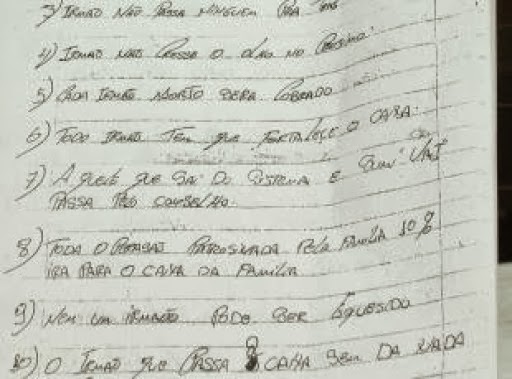 3) IRMÃO NÃO PASSA NINGUEM PRA TRAS
4) IRMÃO NÃO CRESSE O OLHO NO PROSIMO
5) CADA IRMÃO MORTO SERA COBRADO
6) TODO IRMÃO TEM QUE FORTALECE O CAXA.
7) AQUELE QUE SAI DO SISTEMA E QUER VAI
PASSA PELO CONSELHO.
8) TODA O PATROSINADA PELA FAMILIA 10%
IRA PARA O CAXA DA FAMILIA
9) NEM UM IRMÃO PODE SER ESQUESIDO
10) O IRMÃO QUE PASSA CAXA SEM DA NADA